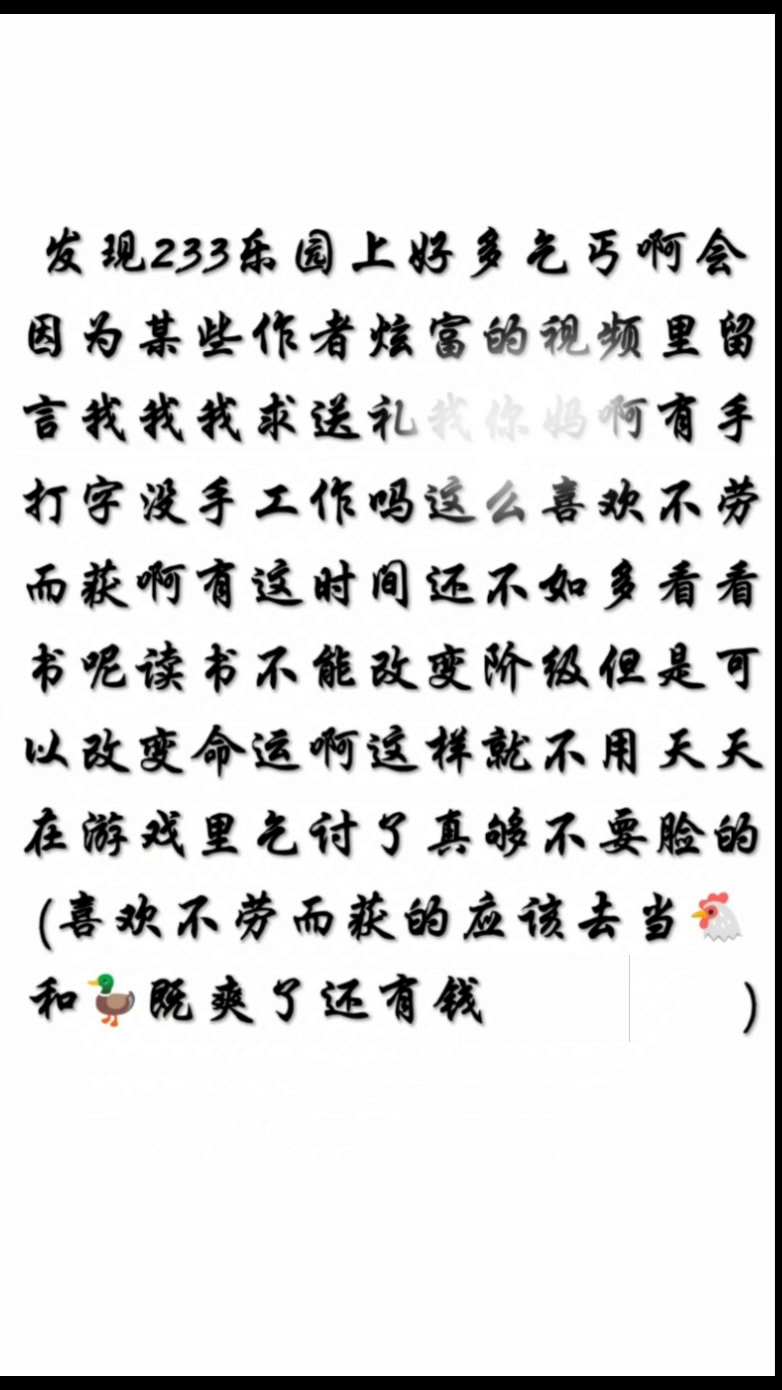 发现233乐园上好多乞丐啊会
因为某些作者炫富的视频里留
言我我我求送礼我你妈啊有手
打字没手工作吗这么喜欢不劳
而获啊有这时间还不如多看看
书呢读书不能改变阶级但是可
以改变命运啊这样就不用天天
在游戏里乞讨了真够不要脸的
(喜欢不劳而获的应该去当🐔
和🦆既爽了还有钱)